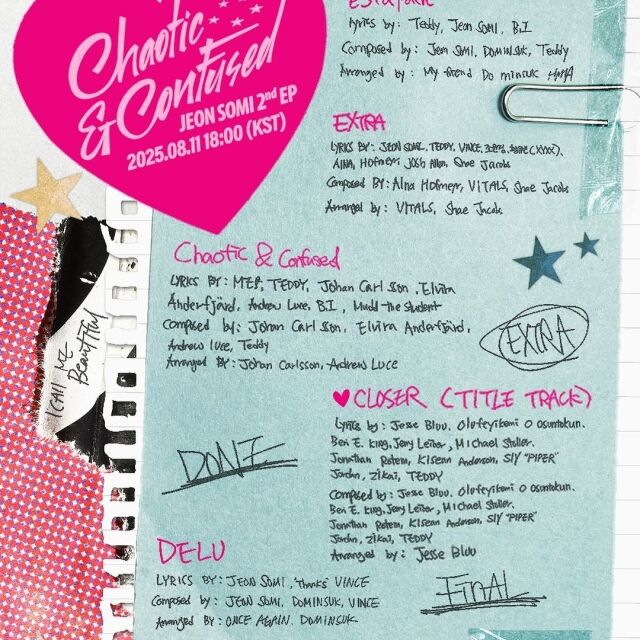 Chaotic
& Confused
JEON SOMI 2nd EP
2025.08.11 18:00 (KST)
Lyrics by: Teddy, Jeon SOMI, B.I
Composed by: Jeon SOMI, DOMINSUK, Teddy
Arranged by: My friend Do minsuk HAHA
EXTRA
LYRICS BY: JEON SOMI, TEDDY, VINCE,
AINA, Hofmeyr, Josh Allon, Shae Jacobs
Composed BY: Aina Hofmeyr, VITALS, Shae Jacobs
Arranged by: VITALS, Shae Jacobs
Chaotic & Confused
LYRICS BY: TEDDY, Johan Carlsson, Elvira
Anderfjärd, Andrew Luce, B.I, Mudd the student
Composed by: Johan Carlsson, Elvira Anderfjärd,
Andrew luce, Teddy
Arranged BY: Johan Carlsson, Andrew Luce
EXTRA
I CALL ME
BEAUTIFUL
♥ CLOSER (TITLE TRACK)
Lyrics by: Jesse Bluu. Olufeyikemi O osuntokun.
Ben E. King, Jerry Leiber, Michael Stoller.
Jonathan Rotem, Kisean Anderson, Sly "PIPER"
Jordan, Zikai, TEDDY
Composed by: Jesse Bluu. Olufeyikemi O osuntokun.
Ben E. King, Jerry Leiber, Michael Stoller.
Jonathan Rotem, Kisean Anderson, Sly "PIPER"
Jordan, Zikai, TEDDY
Arranged by: Jesse Bluu
DONE
DELU
LYRICS BY: JEON SOMI, "Thanks" VINCE
Composed by: JEON SOMI, DOMINSUK, VINCE
Arranged BY: ONCE AGAIN. DOMINSUK
FINAL